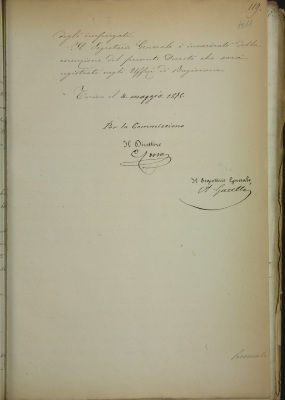 degli impiegati.
Il Segretario Generale è incaricato della
esecuzione del presente Decreto che sarà
registrato negli Uffici di Ragioneria
Torino il 2 maggio 1871
Per la Commissione
Il Direttore
Il Segretario Generale